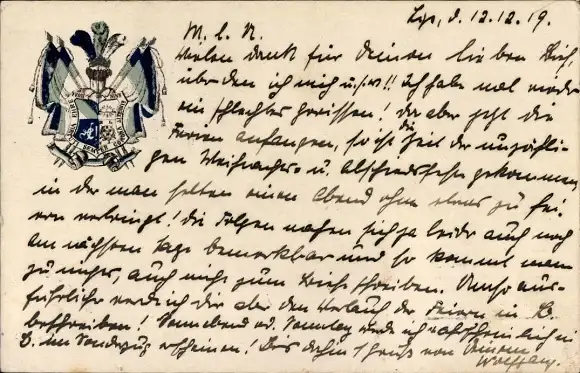 Lpz, d. 12.12.19.
M. l. N.
Vielen Dank für Deinen lieben Brief,
über den ich mich u.s.w!! Ich habe mal wieder
ein schlechtes Gewissen! Da aber jetzt die
Ferien anfangen, so ist die Zeit der unzähli-
gen Weihnachts- u. Abschiedsfeste gekommen
in der man selten einen Abend ohne etwas zu fei-
ern verbringt! Die Folgen machen sich ja leider auch noch
am nächsten Tage bemerkbar und so kommt man
zu nichts, auch nicht zum Briefe schreiben. Umso aus-
führlicher werde ich Dir aber den Verlauf der Feiern in B.
beschreiben! Sonnabend od. Sonntag werde ich wahrscheinlich in
B. im Sonderzug erscheinen! Bis dahin Gruß von Deinem
Wolfgang.